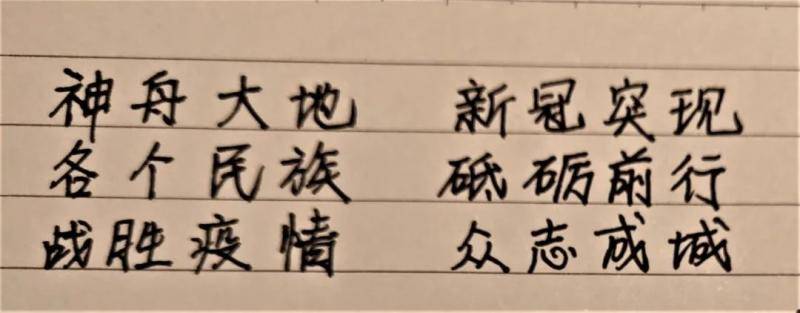 神舟大地 新冠突现
各个民族 砥砺前行
战胜疫情 众志成城